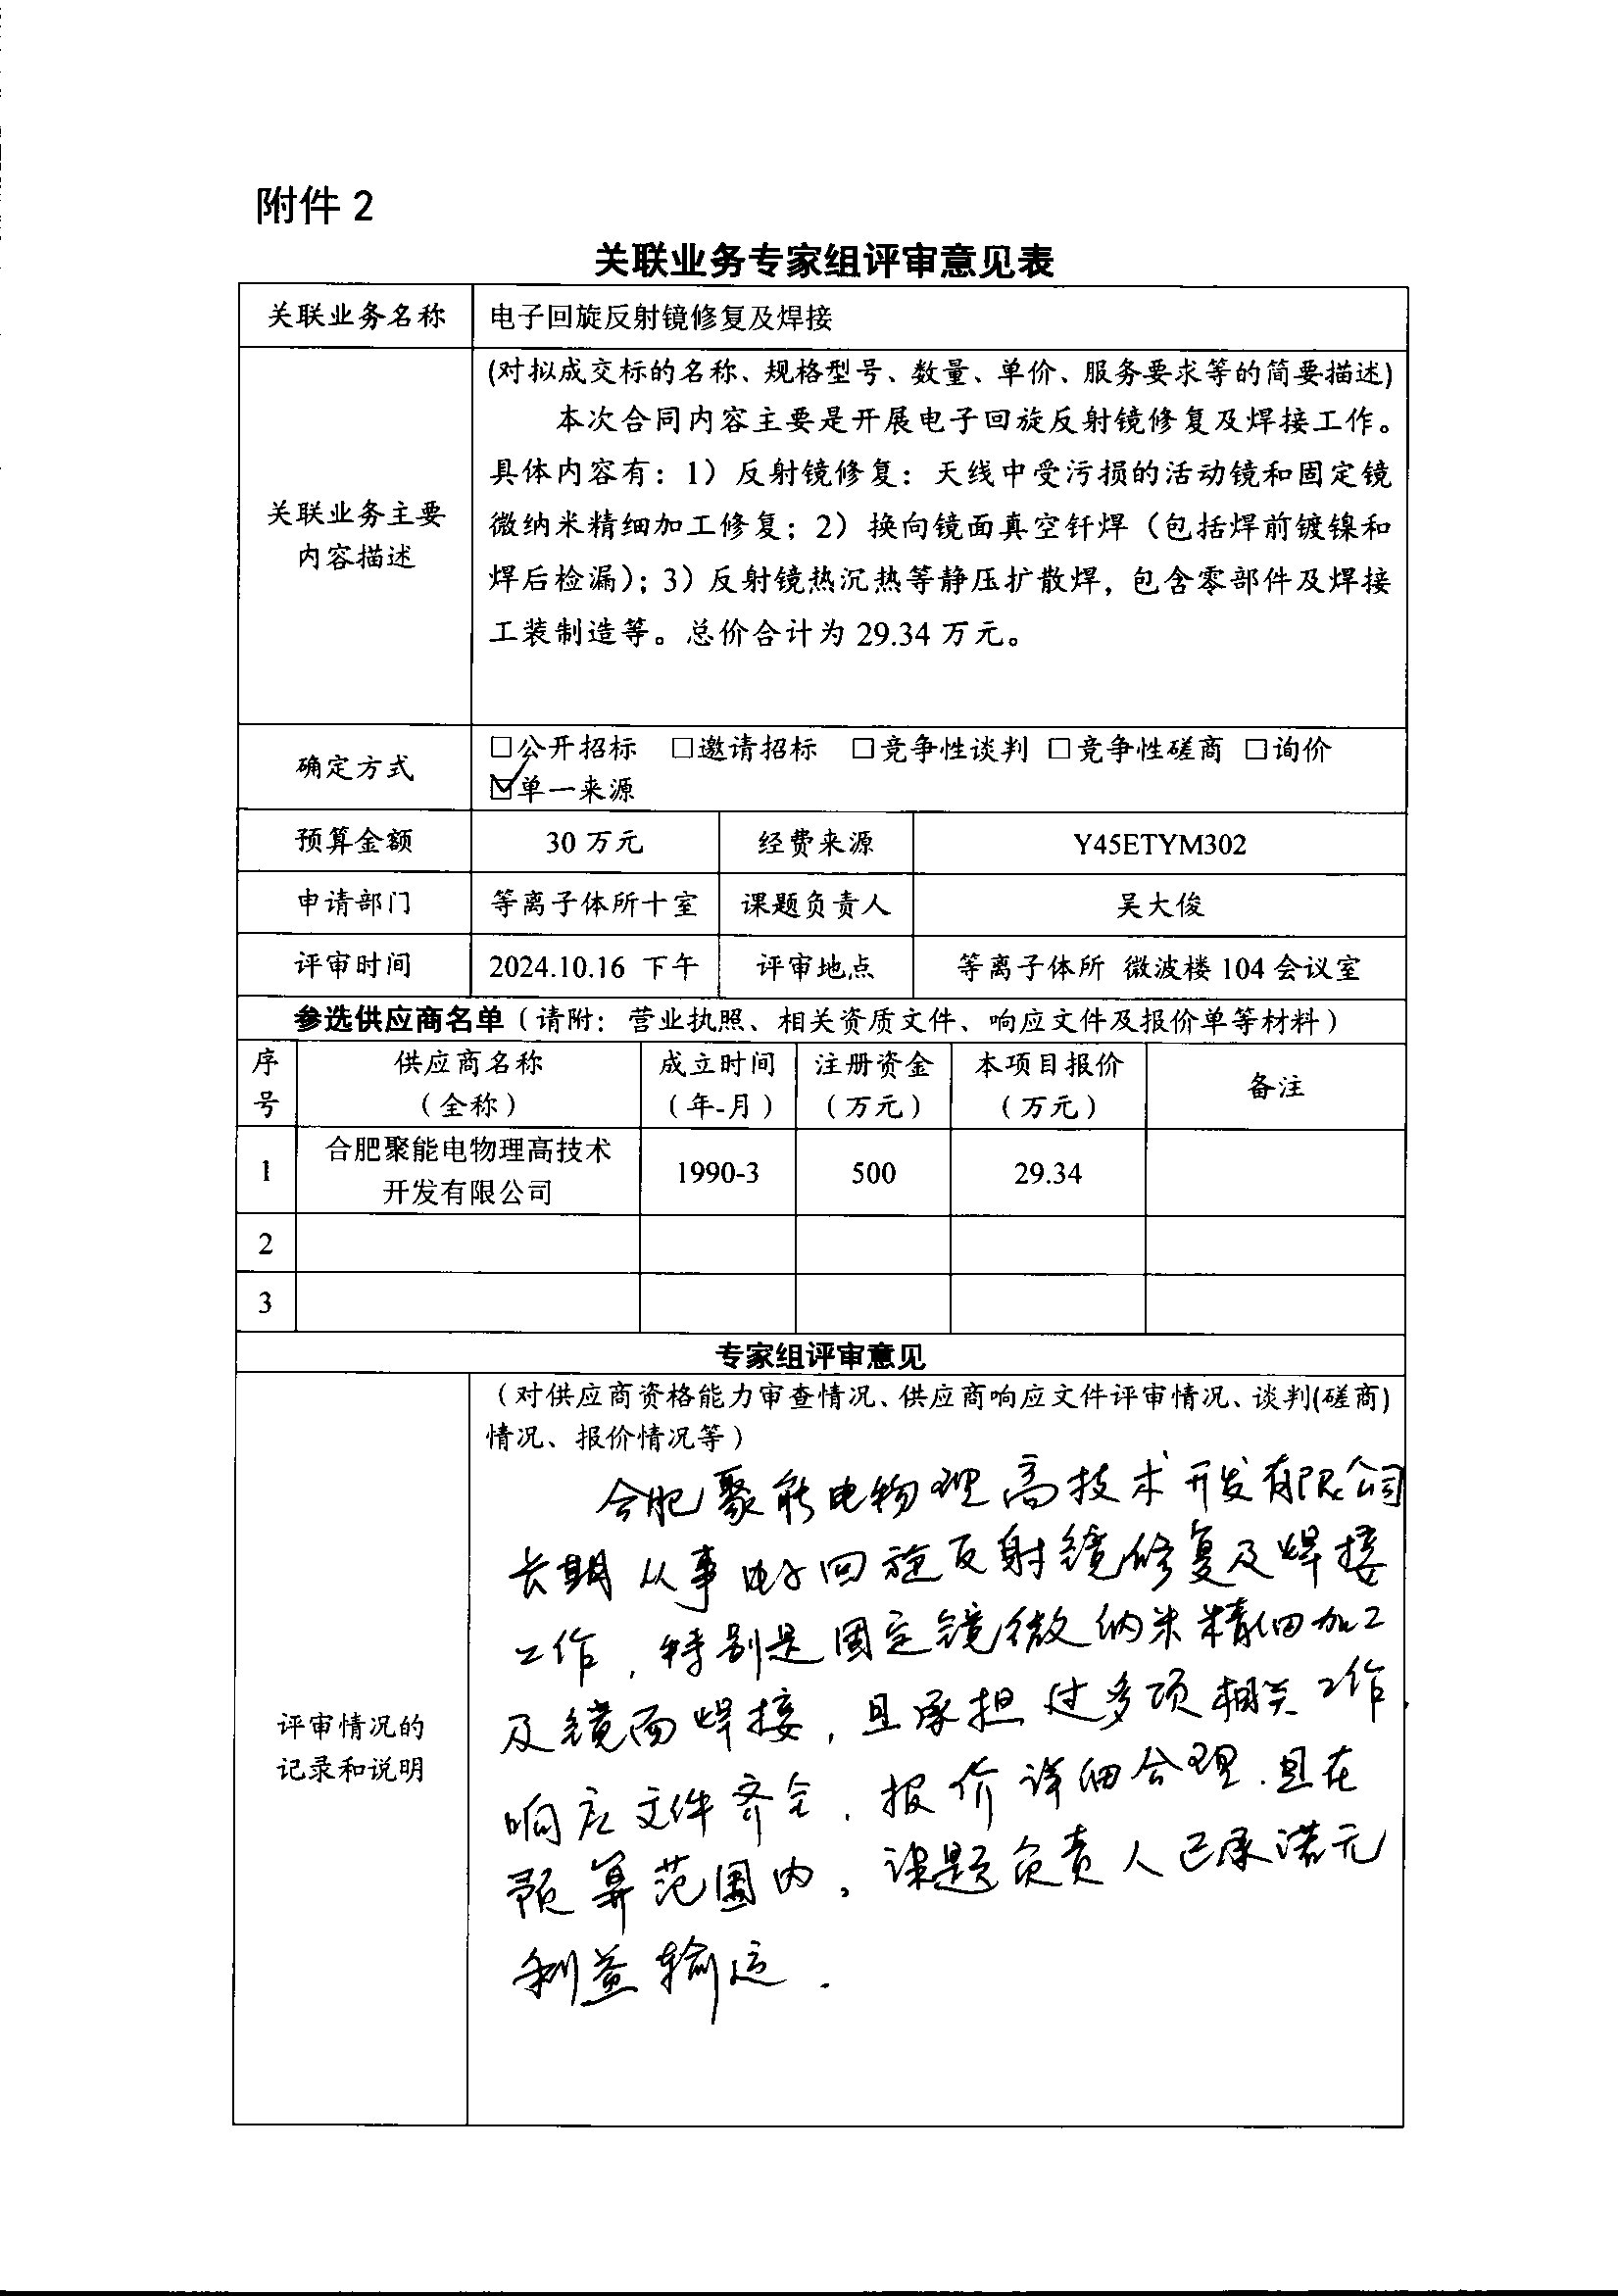 附件 2
关联业务专家组评审意见表
关联业务名称 电子回旋反射镜修复及焊接
(对拟成交标的名称、规格型号、数量、单价、服务要求等的简要描述)
本次合同内容主要是开展电子回旋反射镜修复及焊接工作。
具体内容有：1）反射镜修复：天线中受污损的活动镜和固定镜
关联业务主要
微纳米精细加工修复；2）换向镜面真空钎焊（包括焊前镀镍和
内容描述
焊后检漏）；3）反射镜热沉热等静压扩散焊，包含零部件及焊接
工装制造等。总价合计为 29.34 万元。
确定方式
□公开招标 □邀请招标 □竞争性谈判 □竞争性磋商 □询价
☑单一来源
预算金额 30 万元 经费来源 Y45ETYM302
申请部门 等离子体所十室 课题负责人 吴大俊
评审时间 2024.10.16 下午 评审地点 等离子体所 微波楼 104 会议室
参选供应商名单（请附：营业执照、相关资质文件、响应文件及报价单等材料）
序 供应商名称 成立时间 注册资金 本项目报价 备注
号 （全称） （年-月） （万元） （万元）
1 合肥聚能电物理高技术 1990-3 500 29.34
开发有限公司
2
3
专家组评审意见
（对供应商资格能力审查情况、供应商响应文件评审情况、谈判(磋商)
情况、报价情况等）
合肥聚能电物理高技术开发有限公司
长期从事电子回旋反射镜修复及焊接
工作，特别是固定镜微纳米精细加工
及镜面焊接，且承担过多项相关工作，
评审情况的
记录和说明
响应文件齐全，报价详细合理，且在
预算范围内。课题负责人已承诺无
利益输送.